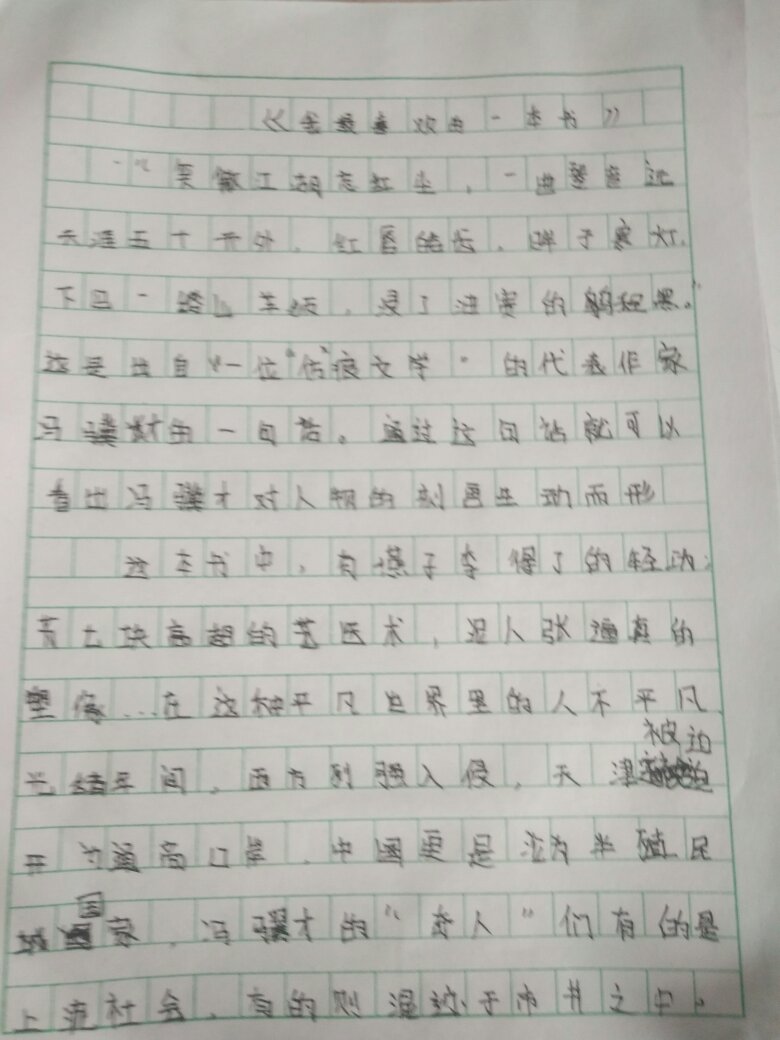 《我最喜欢的一本书》
“笑傲江湖忘红尘,一进塑造
天涯五十开外,红唇皓齿,胖子寒灯,
下巴一
这是出自“一位“伤痕文学”的代表作家
冯骥才的一句话。通过这句话就可以
看出冯骥才对人物的刻画生动而形
这本书中,有燕子李得了的轻功,
苏七块高超的艺医术,泥人张逼真的
塑像...在这种平凡世界里的人不平凡
光绪年间,西方列强入侵,天津被迫
开为通商口岸,中国更是沦为半殖民
国家,冯骥才的“奇人”们有的是
上流社会,有的则混迹于市井之中。